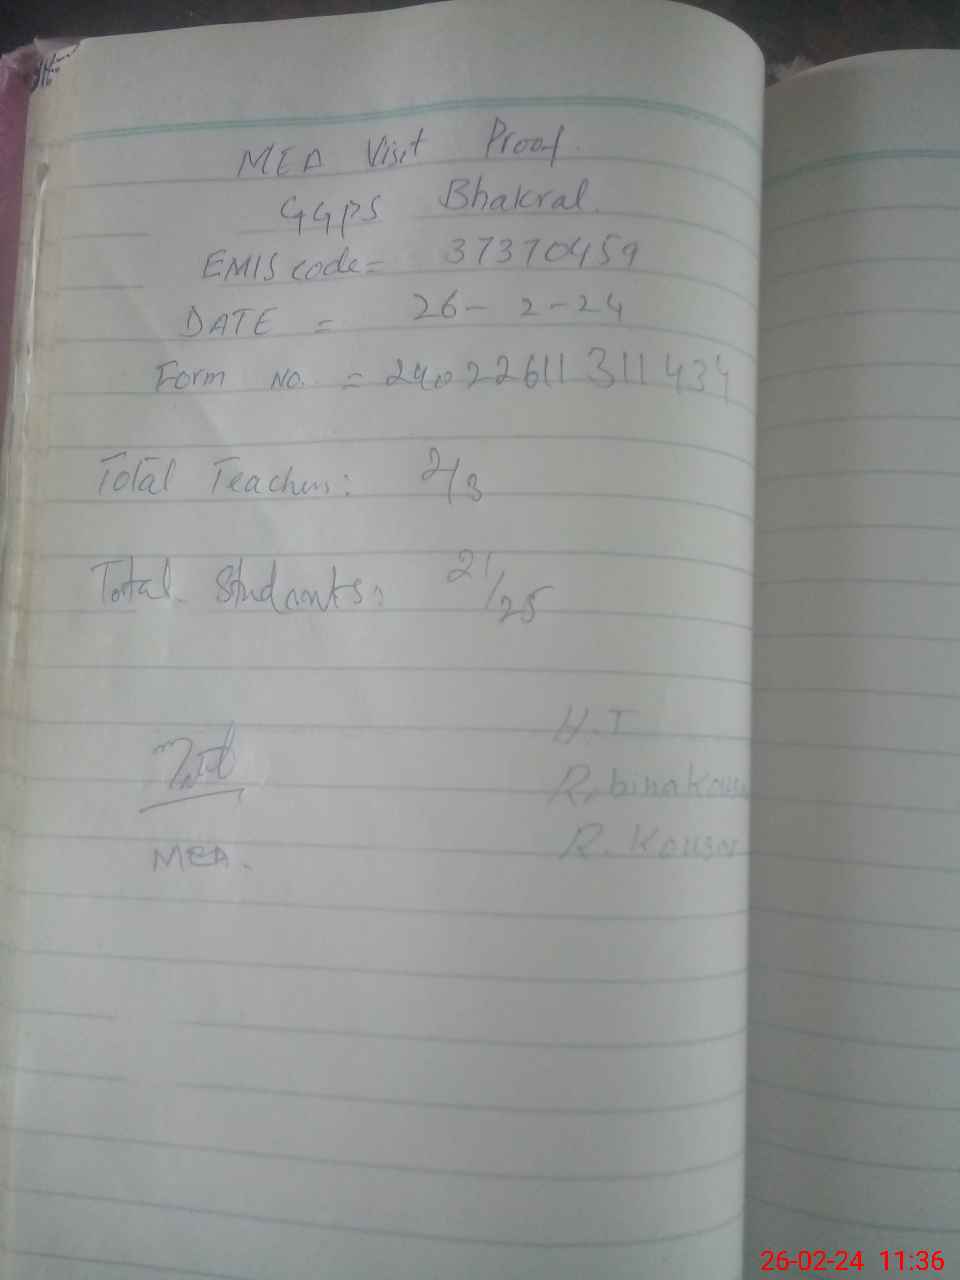 MEA Visit Proof.
GGPS Bhakral.
EMIS code = 37370459
DATE = 26-2-24
Form No. = 24022611311434
Total Teachers: 2/3
Total Students: 21/25
MEA.
H.T
Robina Kous
R. Kousar
26-02-24 11:36